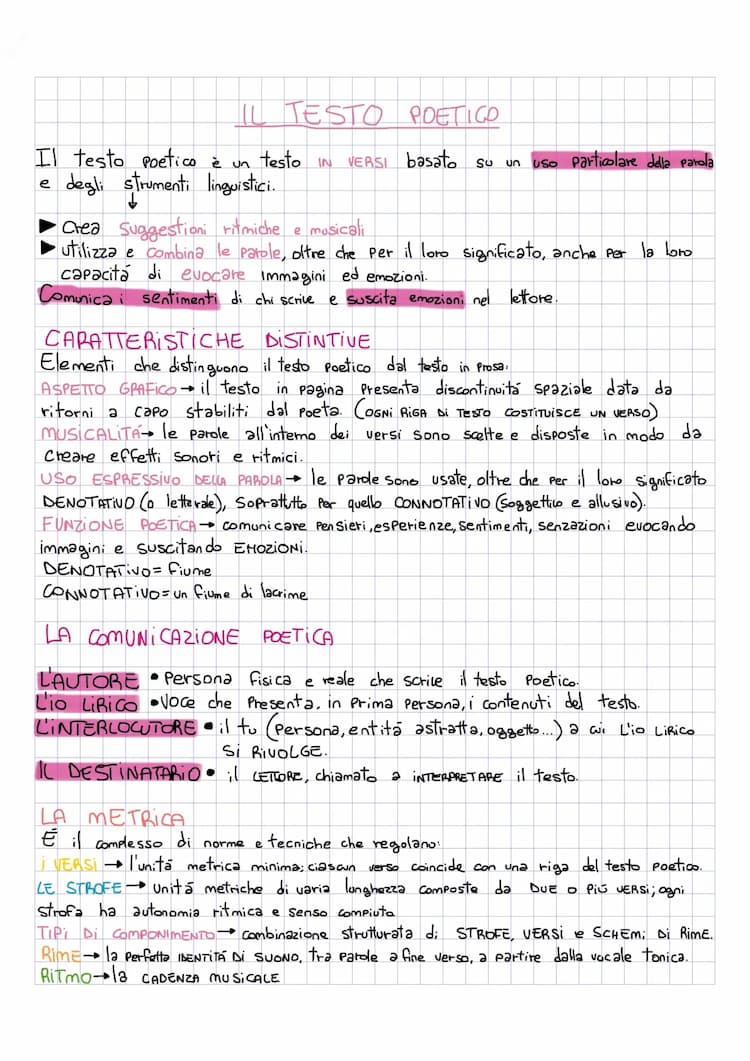 IL TESTO POETICO
Il testo poetico è un testo IN VERSI basato su un uso particolare della parola
e degli strumenti linguistici.
↓
▶ Crea suggestioni ritmiche e musicali
▶ utilizza e combina le parole, oltre che per il loro significato, anche per la loro
capacitá di evocare immagini ed emozioni.
Comunica i sentimenti di chi scrive e suscita emozioni nel lettore.
CARATTERISTICHE DISTINTIVE
Elementi che distinguono il testo poetico dal testo in prosa.
ASPETTO GRAFICO → il testo in pagina presenta discontinuitá spaziale data da
ritorni a capo stabiliti dal poeta. (OGNI RIGA DI TESTO COSTITUISCE UN VERSO)
MUSICALITÁ → le parole all'interno dei versi sono scelte e disposte in modo da
creare effetti sonori e ritmici.
USO ESPRESSIVO DELLA PAROLA → le parole sono usate, oltre che per il loro significato
DENOTATIVO (o letterale), soprattutto per quello CONNOTATIVO (soggettico e allusivo).
FUNZIONE POETICA → comunicare pensieri, esperienze, sentimenti, senzazioni evocando
immagini e suscitando EMOZIONI.
DENOTATIVO = fiume
CONNOTATIVO = un fiume di lacrime
LA COMUNICAZIONE POETICA
L'AUTORE • Persona fisica e reale che scrive il testo poetico.
L'IO LIRICO • Voce che presenta, in prima persona, i contenuti del testo.
L'INTERLOCUTORE • il tu (persona, entitá astratta, oggetto...) a cui L'IO LIRICO
SI RIVOLGE.
IL DESTINATARIO • il LETTORE, chiamato a INTERPRETARE il testo.
LA METRICA
É il complesso di norme e tecniche che regolano:
I VERSI → l'unitá metrica minima; ciascun verso coincide con una riga del testo poetico.
LE STROFE → unitá metriche di varia lunghezza composte da DUE O PIÚ VERSI; ogni
strofa ha autonomia ritmica e senso compiuto
TIPI DI COMPONIMENTO → combinazione strutturata di STROFE, VERSI e SCHEMI DI RIME.
RIME → la perfetta IDENTITÁ DI SUONO, tra parole a fine verso, a partire dalla vocale tonica.
RITMO → la CADENZA MUSICALE